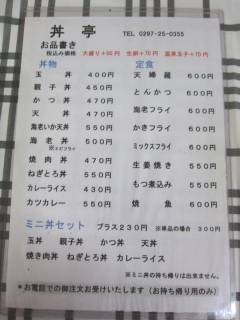 丼亭 TEL 0297-25-0355
お品書き
税込み価格 大盛り+50円 生卵+70円 温泉玉子+70円
丼物
玉丼 400円
親子丼 450円
かつ丼 470円
天丼 470円
海老いか天丼 550円
海老丼 500円
※エビフライ
焼肉丼 470円
ねぎとろ丼 550円
カレーライス 430円
カツカレー 550円
定食
天婦羅 600円
とんかつ 600円
海老フライ 600円
かきフライ 600円
ミックスフライ 600円
生姜焼き 550円
もつ煮込み 550円
焼魚 600円
ミニ丼セット プラス230円 ※単品の場合 300円
玉丼 親子丼 かつ丼 天丼
焼き肉丼 ねぎとろ丼 カレーライス
※ミニ丼の持ち帰りは出来ません。
*お電話での御注文お受けいたします(お持ち帰り用のみ)